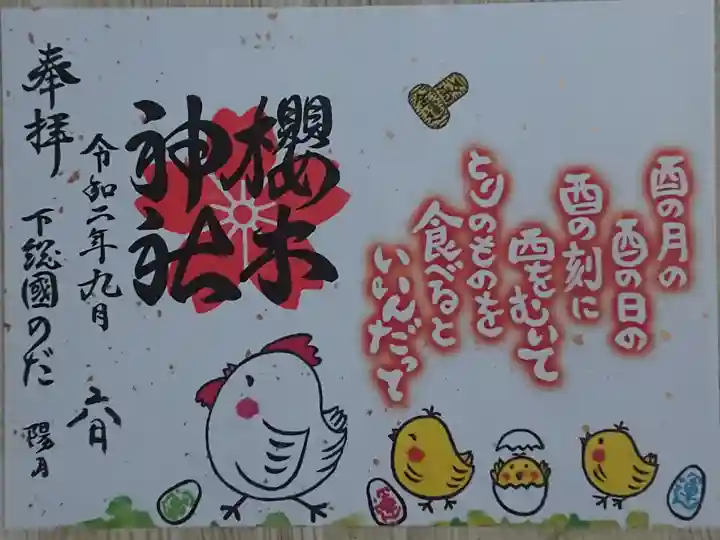 酉の月の
酉の日の
酉の刻に
西をむいて
とりのものを
食べると
いいんだって
櫻木
神社
奉拝
令和二年九月
六日
下総國のだ
陽月
運